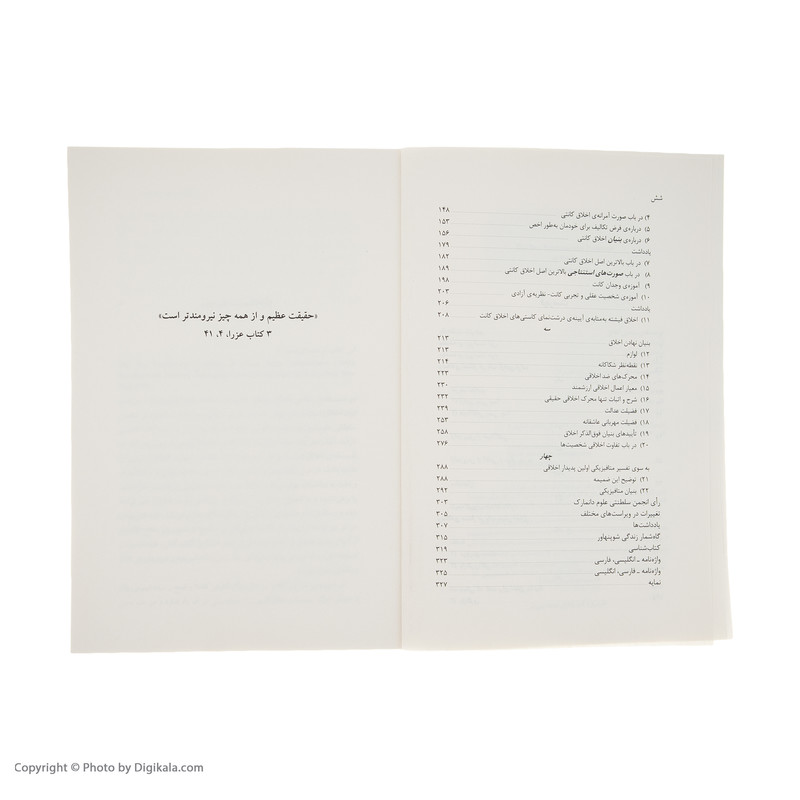 شش
۴) در باب صورت آمرانه‌ی اخلاق کانتی ۱۴۸
۵) درباره‌ی فرض تکالیف برای خودمان به‌طور اخص ۱۵۳
۶) درباره‌ی بنیان اخلاق کانتی ۱۵۶
یادداشت ۱۷۹
۷) در باب بالاترین اصل اخلاق کانتی ۱۸۲
۸) در باب صورت‌های استنتاجی بالاترین اصل اخلاق کانتی ۱۸۹
۹) آموزه‌ی وجدان کانت ۱۹۸
۱۰) آموزه‌ی شخصیت عقلی و تجربی کانت- نظریه‌ی آزادی ۲۰۳
یادداشت ۲۰۶
۱۱) اخلاق فیشته به‌مثابه‌ی آیینه‌ی درشت‌نمای کاستی‌های اخلاق کانت ۲۰۸
سه
بنیان نهادن اخلاق ۲۱۳
۱۲) لوازم ۲۱۳
۱۳) نقطه‌نظر شکاکانه ۲۱۴
۱۴) محرک‌های ضد اخلاقی ۲۲۳
۱۵) معیار اعمال اخلاقی ارزشمند ۲۳۰
۱۶) شرح و اثبات تنها محرک اخلاقی حقیقی ۲۳۲
۱۷) فضیلت عدالت ۲۳۹
۱۸) فضیلت مهربانی عاشقانه ۲۵۳
۱۹) تأییدهای بنیان فوق‌الذکر اخلاق ۲۵۸
۲۰) در باب تفاوت اخلاقی شخصیت‌ها ۲۷۶
چهار
به سوی تفسیر متافیزیکی اولین پدیدار اخلاقی ۲۸۸
۲۱) توضیح این ضمیمه ۲۸۸
۲۲) بنیان متافیزیکی ۲۹۲
رأی انجمن سلطنتی علوم دانمارک ۳۰۳
تغییرات در ویراست‌های مختلف ۳۰۵
یادداشت‌ها ۳۰۷
گاه‌شمار زندگی شوپنهاور ۳۱۵
کتاب‌شناسی ۳۱۹
واژه‌نامه ـ انگلیسی، فارسی ۳۲۳
واژه‌نامه ـ فارسی، انگلیسی ۳۲۵
نمایه ۳۲۷
«حقیقت عظیم و از همه چیز نیرومندتر است»
۳ کتاب عزرا، ۴، ۴۱
Copyright © Photo by Digikala.com